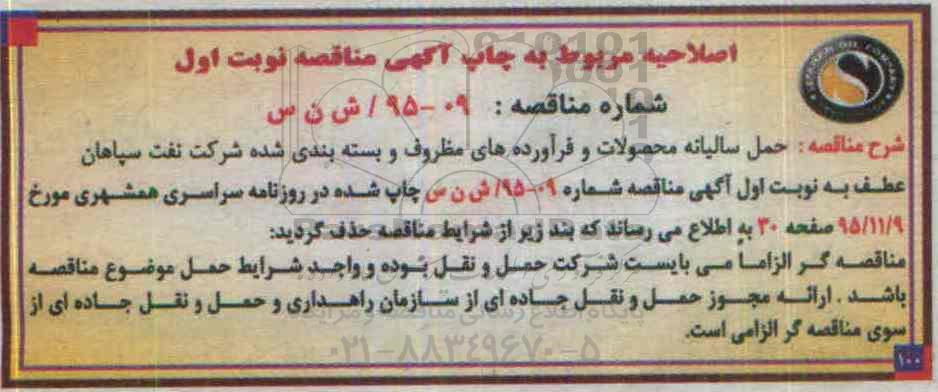 اصلاحیه مربوط به چاپ آگهی مناقصه نوبت اول
شماره مناقصه : ۰۹ -۹۵ / ش ن س
شرح مناقصه : حمل سالیانه محصولات و فرآورده های مظروف و بسته بندی شده شرکت نفت سپاهان
عطف به نوبت اول آگهی مناقصه شماره ۰۹-۹۵/ ش ن س چاپ شده در روزنامه سراسری همشهری مورخ
۹۵/۱۱/۹ صفحه ۳۰ به اطلاع می رساند که بند زیر از شرایط مناقصه حذف گردید:
مناقصه گر الزاماً می بایست شرکت حمل و نقل بوده و واجد شرایط حمل موضوع مناقصه
باشد . ارائه مجوز حمل و نقل جاده ای از سازمان راهداری و حمل و نقل جاده ای از
سوی مناقصه گر الزامی است.
پایگاه اطلاع رسانی مناقصه و مزایده
۰۲۱-۸۸۳۴۹۶۷۰-۵
۱۰۰